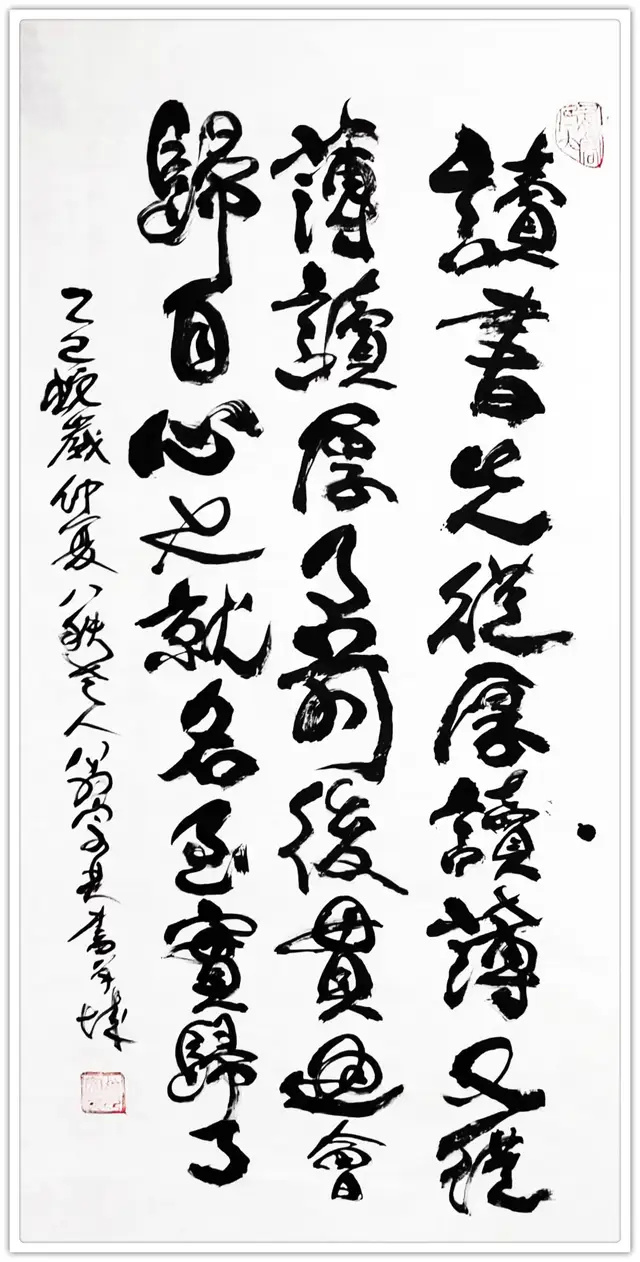 讀書先從厚讀薄又從
薄讀厚了前後貫通會
歸自心也就名至實歸了
乙巳蛇歲仲夏八秩老人書於